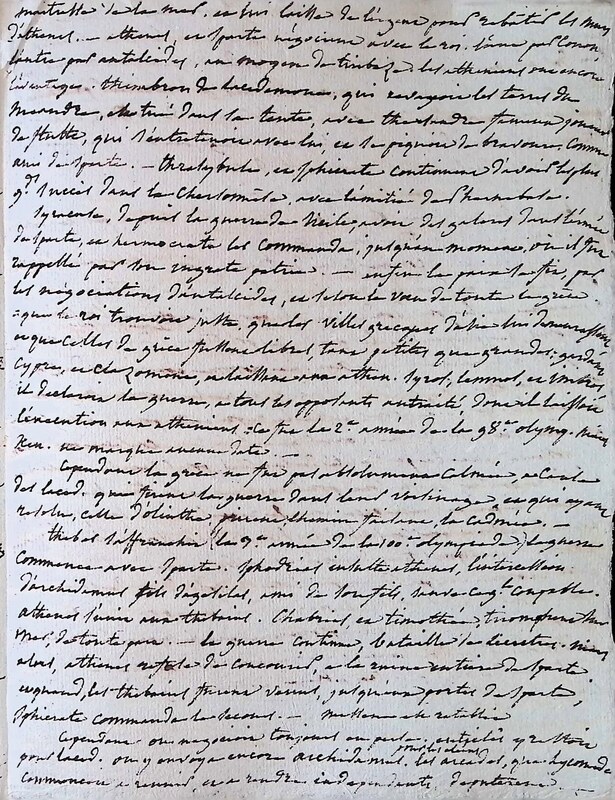 de la mer, et lui laisse de l'argent pour rebatir les murs
d'athenes. — athenes, et sparte négocient avec le roi. l'une par Conon,
l'autre par antalcidas, au moyen de tiribaze. les atheniens ont encore
l'avantage. thimbron de lacedemone, qui ravageoit les terres du
meandre, est tué dans sa tente, avec thersandre fameux joueur
de flutte, qui s'entretenoit avec lui, et se piquoit de bravoure, comme
ami de sparte. — thrasybule, et iphicrate continuent d'avoir les plus
gds succès dans la Chersonnèse, avec l'amitié de Pharnabaze.
Syracuse, depuis la guerre de Sicile, avoit des galeres dans l'armée
de sparte, et hermocrate les commanda, jusqu'au moment, où il fut
rappellé par son ingrate patrie. — enfin la paix se fit, par
les négociations d'antalcidas, et selon le voeu de toute la grèce
que le roi trouvoit juste, que les villes grecques d'asie lui demeurassent
et que celles de grèce fussent libres, tant petites que grandes; gardoit
Cypre, et Clazomene, et laissant aux athen. Syros, lemnos, et imbros,
il declaroit la guerre, à tous les opposants au traité, dont il laissoit
l'execution aux atheniens. Ce fut la 2e année de la 98e olymp. mais
Xen. ne marque aucune date —
Cependant la grèce ne fut pas absolument calmée, à cause
des laced. que firent la guerre dans leur voisinage, et qui ayant
résolu, celle d'olinthe, prirent, chemin faisant, la Cadmée. —
thebes s'affranchit la 3e année de la 100e olympiade; la guerre
commence avec sparte. Sphodrias insulte athenes, l'intercession
d'archidamus fils d'agesilas, ami de son fils, sauve ce gl coupable.
athenes s'unit aux thebains. Chabrias, et timothée, triomphent sur
mer, de toute part. — la guerre continue, bataille de leuctres. mais
alors, athenes refuse de concourir, à la ruine entiere de sparte
et quand, les thebains furent venus, jusqu'aux portes de sparte,
Iphicrate commanda le secours. — messene est rétablie
Cependant on negocioit toujours en perse, antalcidas y restoit
pour laced. on y envoya encore archidamus. les arcades, que lycomede
commençoit à reunir, et à rendre independants,